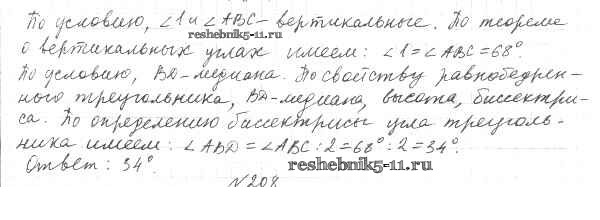 По условию, ∠1 и ∠ABC - вертикальные. По теореме
о вертикальных углах имеем: ∠1 = ∠ABC = 68°.
По условию, BD-медиана. По свойству равнобедрен-
ного треугольника, BD-медиана, высота, биссектри-
са. По определению биссектрисы угла треуголь-
ника имеем: ∠ABD = ∠ABC : 2 = 68° : 2 = 34°.
Ответ: 34°.
reshebnik5-11.ru
reshebnik5-11.ru
№208